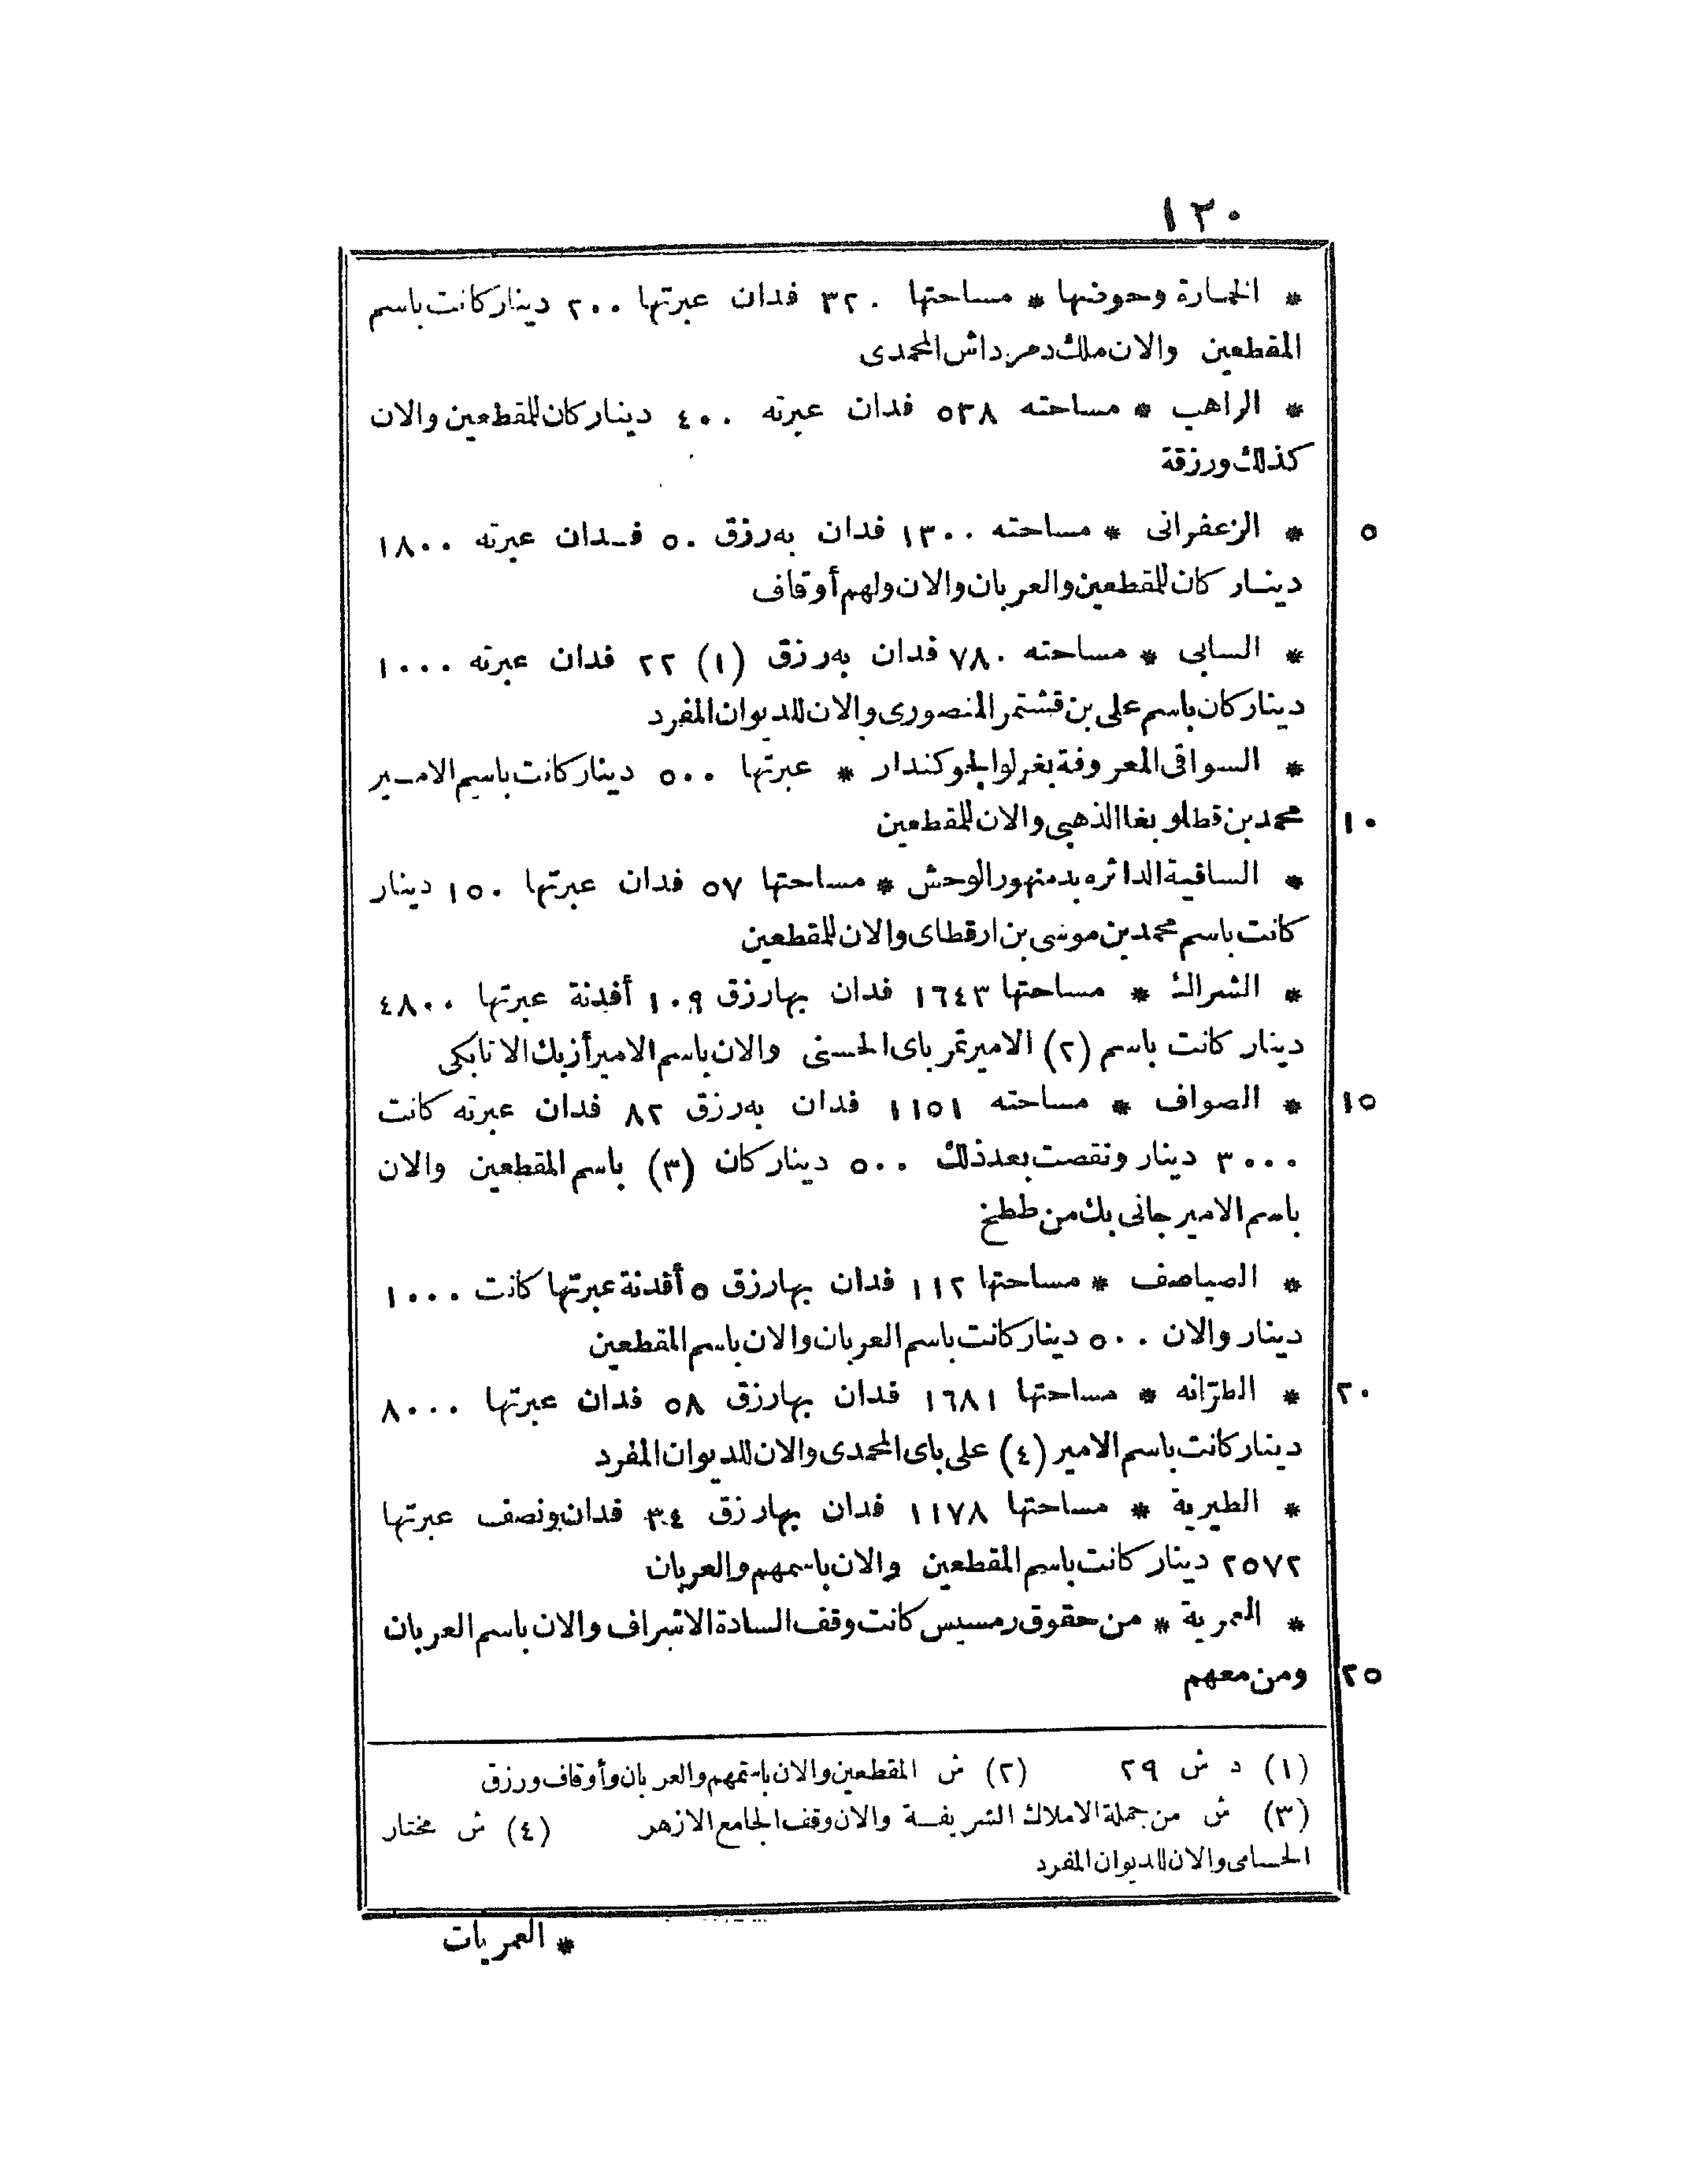 ١٢٠
* الخمارة وحوضها * مساحتها ٣٢٠ فدان عبرتها ٢٠٠ دينار كانت باسم
المقطعين والان ملك دمرداش المحمدى
* الراهب * مساحته ٥٣٨ فدان عبرته ٤٠٠ دينار كان للمقطعين والان
كذلك ورزقة
٥ * الزعفرانى * مساحته ١٣٠٠ فدان به رزق ٥٠ فدان عبرته ١٨٠٠
دينار كان للمقطعين والعربان والان ولهم أوقاف
* السابى * مساحته ٧٨٠ فدان به رزق (١) ٢٢ فدان عبرته ١٠٠٠
دينار كان باسم على بن قشتمر المنصورى والان للديوان المفرد
* السواقى المعروفة بغرلوا الجوكندار * عبرتها ٥٠٠ دينار كانت باسم الامير
١٠ محمد بن قطلوبغا الذهبى والان للمقطعين
* الساقية الدائره بدمنهور الوحش * مساحتها ٥٧ فدان عبرتها ١٥٠ دينار
كانت باسم محمد بن موسى بن ارقطاى والان للمقطعين
* الشراك * مساحتها ١٦٤٣ فدان بها رزق ١٠٩ أفدنة عبرتها ٤٨٠٠
دينار كانت باسم (٢) الامير تمرباى الحسنى والان باسم الامير أزبك الاتابكى
١٥ * الصواف * مساحته ١١٥١ فدان به رزق ٨٢ فدان عبرته كانت
٣٠٠٠ دينار ونقصت بعد ذلك ٥٠٠ دينار كان (٣) باسم المقطعين والان
باسم الامير جانى بك من ططخ
* الصياصف * مساحتها ١١٢ فدان بها رزق ٥ أفدنة عبرتها كانت ١٠٠٠
دينار والان ٥٠٠ دينار كانت باسم العربان والان باسم المقطعين
٢٠ * الطرّانه * مساحتها ١٦٨١ فدان بها رزق ٥٨ فدان عبرتها ٨٠٠٠
دينار كانت باسم الامير (٤) على باى المحمدى والان للديوان المفرد
* الطيرية * مساحتها ١١٧٨ فدان بها رزق ٣٤ فدان ونصف عبرتها
٢٥٧٢ دينار كانت باسم المقطعين والان باسمهم والعربان
* العمرية * من حقوق رمسيس كانت وقف السادة الاشراف والان باسم العربان
٢٥ ومن معهم
(١) د ش ٢٩ (٢) ش المقطعين والان باسمهم والعربان وأوقاف ورزق
(٣) ش من جملة الاملاك الشريفة والان وقف الجامع الازهر (٤) ش مختار
الحسامى والان للديوان المفرد
* العمريات